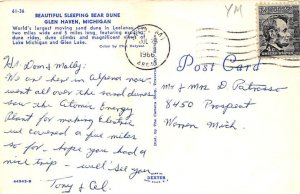 61-36
BEAUTIFUL SLEEPING BEAR DUNE
GLEN HAVEN, MICHIGAN
World's largest moving sand dune in Leelanau
two miles wide and 5 miles long, featuring exciting
dune rides, dune climbs and magnificent views of
Lake Michigan and Glen Lake.
Hi Don & Molly:
We are here in Alpena now.
went all over the sand dunes
saw the Atomic Energy
Plant for making Electric
we covered a few miles
so far - hope you had a
nice trip - will see you
Tony & Cel.
44945-B
1966
YM
Post Card
Mr & Mrs D Patrosso
8450 Prospect
Warren Mich.
DEXTER